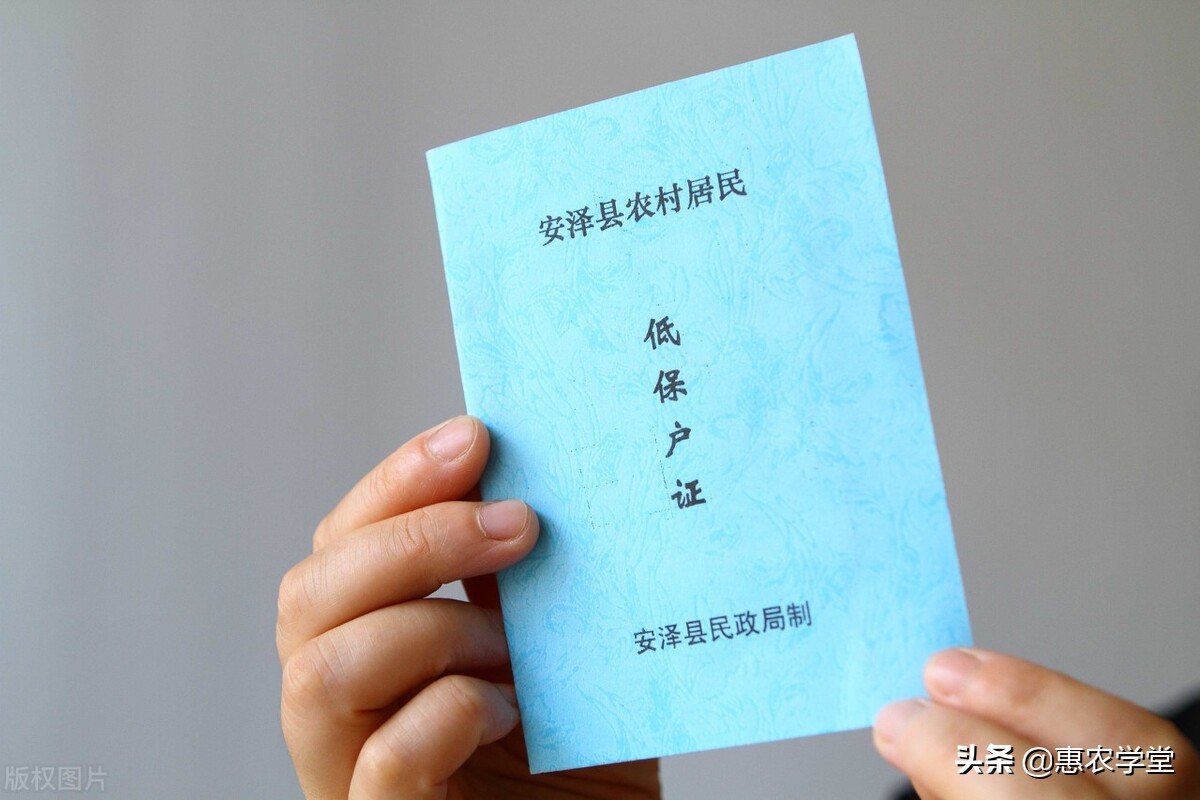 安泽县农村居民
低保户证
安泽县民政局制
版权图片
头条 @惠农学堂